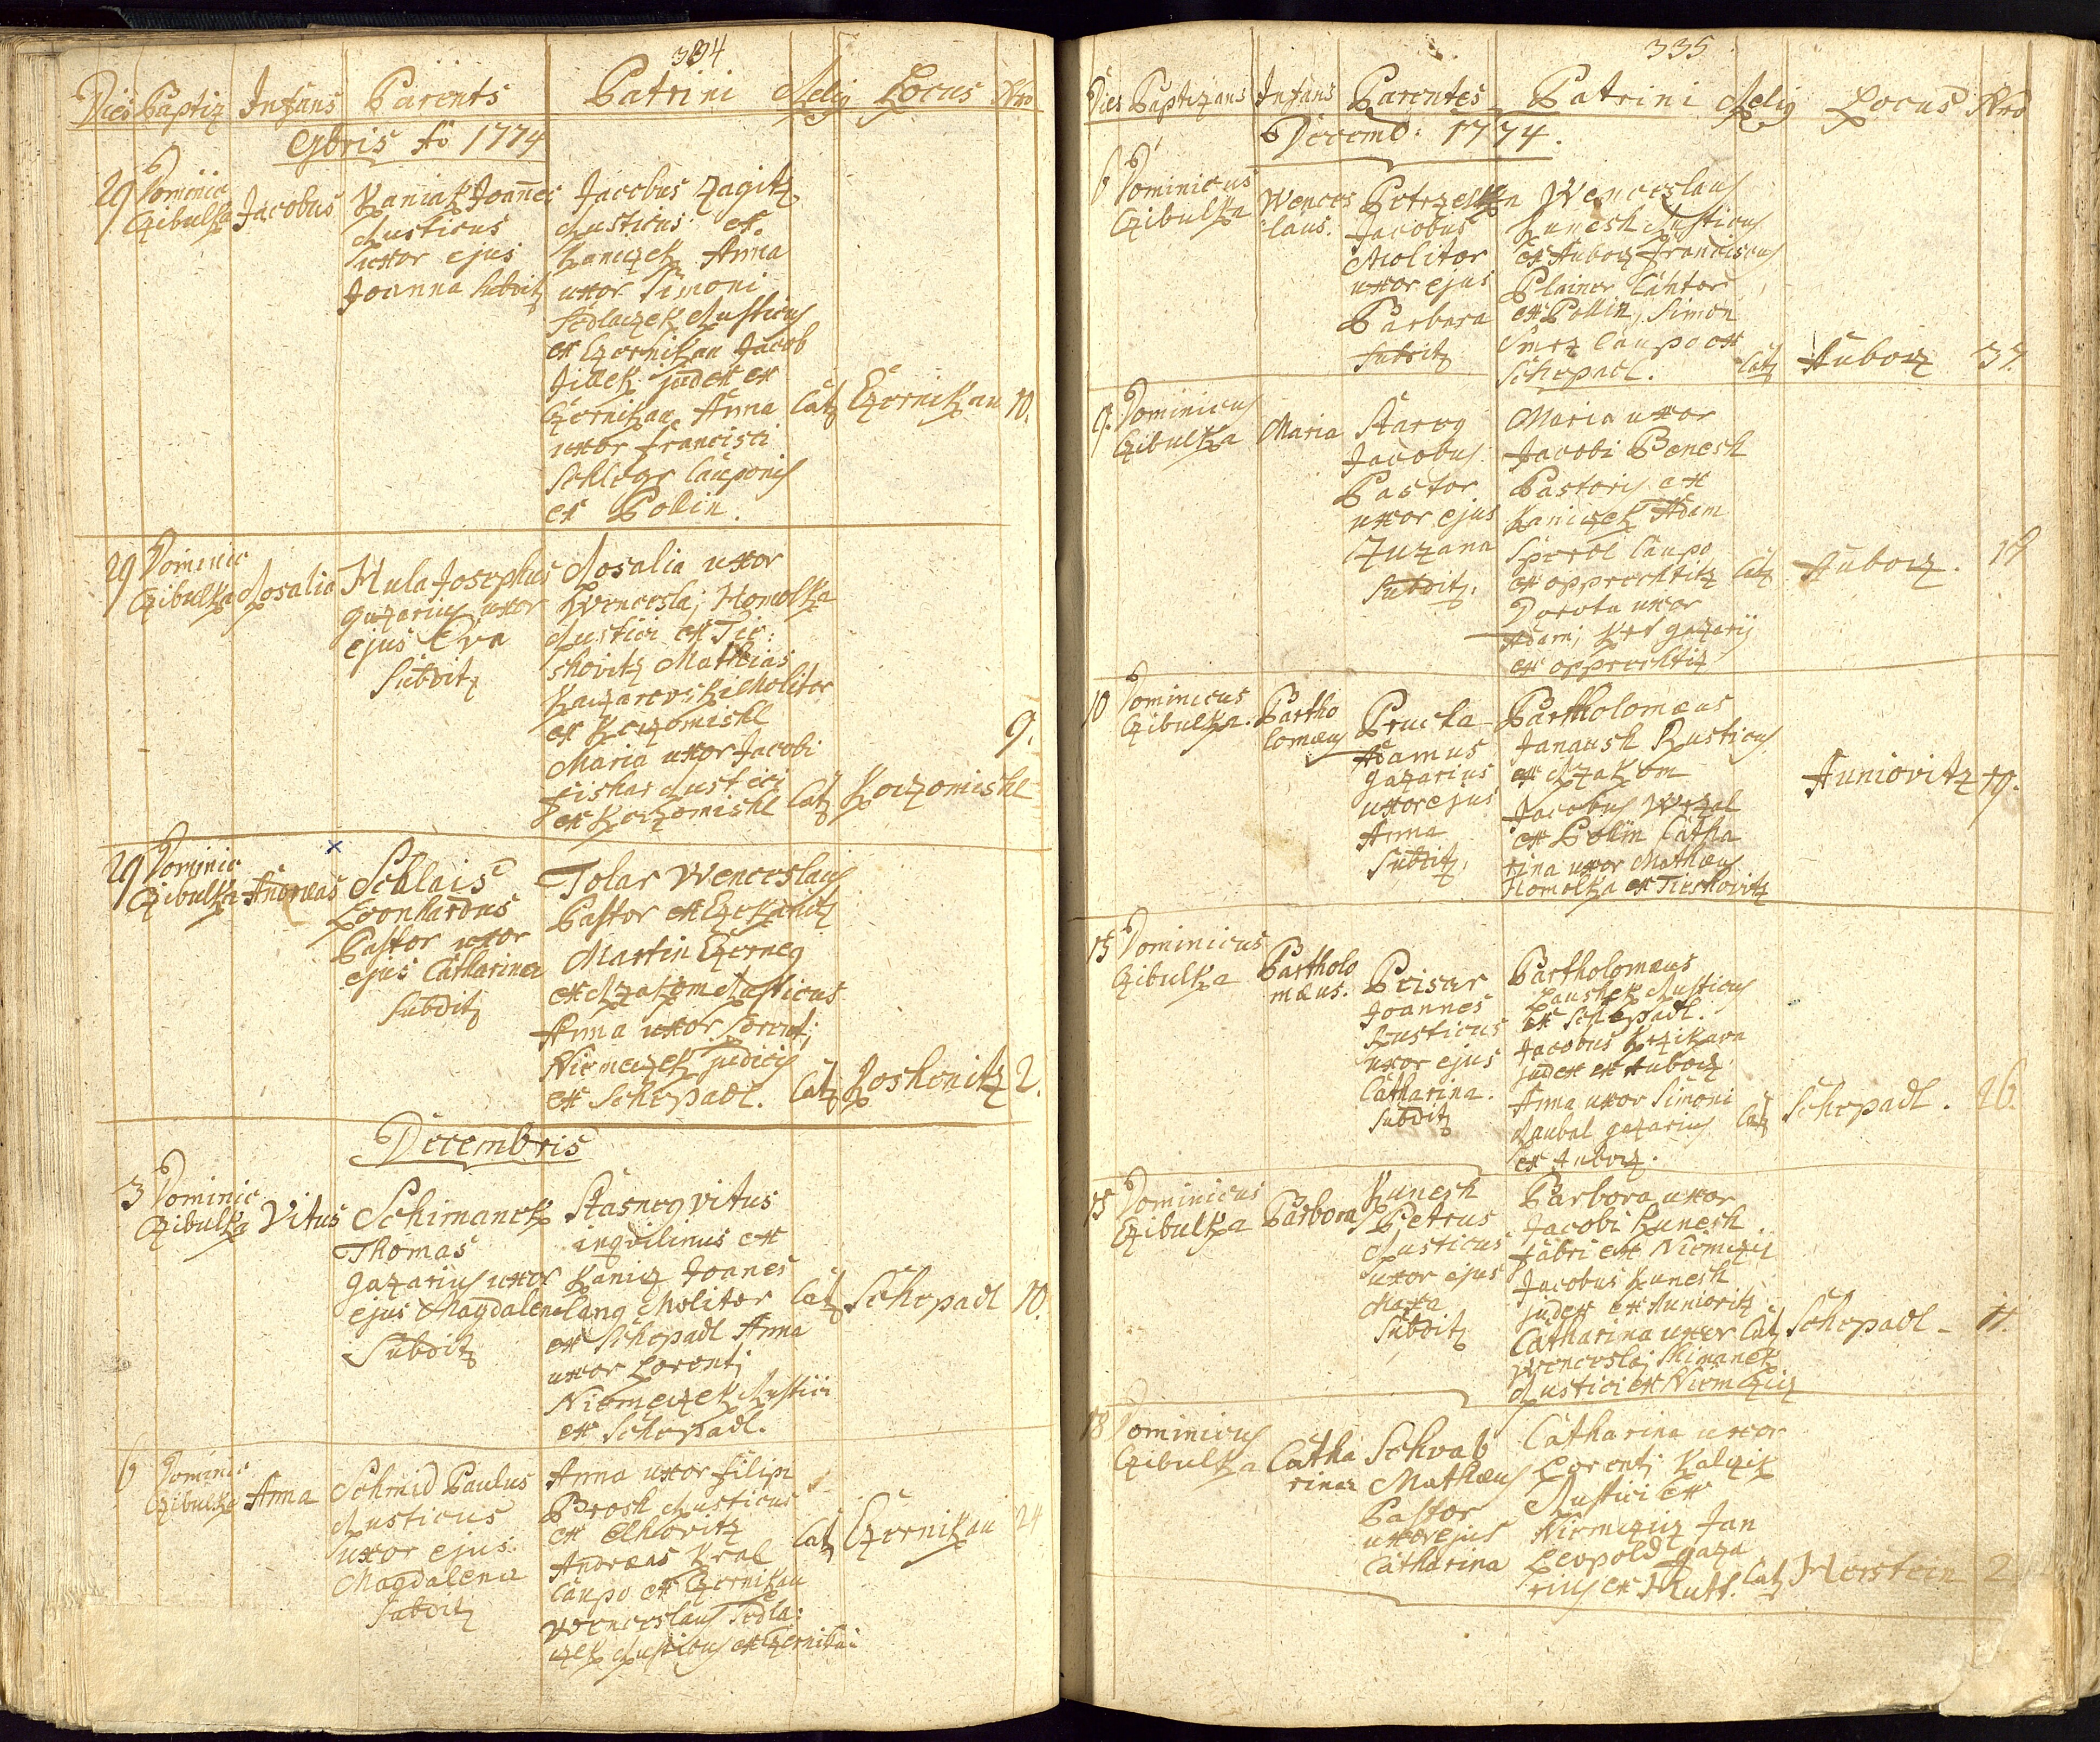 334
Dies Baptiz Infans Parents Patrini Relig Locus Nro
9bris Ao 1774
29 Dominic Czibulka
Jacobus
Kaniak Joannes
Rusticus
uxor ejus
Joanna subditz
Jacobus Zagitz
Rusticus et
Kaniczek Anna
uxor Simoni
Sedlaczek Rusticus
ex Czernikau Jacob
Jillek judex ex
Czernikau Anna
uxor Francisci
Schlegr Cauponis
ex Pollin.
Cat Czernikau 10.
29 Dominic Czibulka
Rosalia
Hula Josephus
gazarius uxor
ejus Eva
Subditz
Rosalia uxor
Wenceslaj Homolka
Rustici ex Tir:
skovitz Mathias
Kaczarovski Molitor
ex Koczomischl
Maria uxor Jacobi
Fishar Rustici
ex Koczomischl
Cat Koczomischl 9.
29 Dominic Czibulka
Andreas
Schlais
Leonhardus
Pastor uxor
ejus Catharina
Subditz
Tolar Wenceslaus
Pastor ex
Martin Czerney
ex Rzakom Rusticus
Anna uxor Lorentj
Niemeczek judicis
ex Schepadl.
Cat Loshenitz 2.
Decembris
3 Dominic Czibulka
Vitus
Schimanek
Thomas
gazarius uxor
ejus Magdalena
Subditz
Stasney Vitus
inqvilinus ex
Kanicz Joanes
Lang Molitor
ex Schepadl Anna
uxor Lorentj
Niemeczek Rustici
ex Schepadl.
Cat Schepadl 10.
6 Dominic Czibulka
Anna
Schmid Paulus
Rusticus
uxor ejus
Magdalena
Subditz
Anna uxor Filipi
Brosh Rusticus
ex Elhovitz
Andreas Kral
Caupo ex Czernikau
Wenceslaus Sedla:
czek Rusticus ex Czernikau
Cat Czernikau 24
335
Dies Baptizans Infans Parentes Patrini Relig Locus Nro
Decemb: 1774.
6 Dominicus Czibulka
Wences
laus.
Petrzelka
Jacobus
Molitor
uxor ejus
Barbara
subditz
Wenceslaus
Kunesh Rusticus
ex Auborz Franciscus
Plainer Cantor
ex Pollin, Simon
Smrz Caupo ex
Schepadl.
Cat Auborz 37.
9. Dominicus Czibulka
Maria
Starey
Jacobus
Pastor
uxor ejus
Zuzana
Subditz.
Maria uxor
Jacobi Benesh
Pastoris ex
Kaniczek Adam
Sperl Caupo
ex opprechtitz
Dorota uxor
Adami Krs gazarij
ex opprechtitz
Cat Auborz. 18
10 Dominicus Czibulka.
Bartho
lomeus
Prucha
Adamus
gazarius
uxor ejus
Anna
Subditz.
Bartholomæus
Janaush Rusticus
ex Rzakom
Jacobus Wrzal
ex Pollin Catha
rina uxor Mathæus
Homolka ex Tirskovitz
Auniovitz 19.
15 Dominicus Czibulka
Bartholo
mæus.
Beisar
Joannes
Rusticus
uxor ejus
Catharina.
Subditz
Bartholomæus
Laushek Rusticus
ex Schepadl.
Jacobus Krzikava
judex ex Auborz
Anna uxor Simoni
Raubal gazarius
ex Auborz.
Cat Schepadl. 26.
15 Dominicus Czibulka
Barbora
Kunesh
Petrus
Rusticus
uxor ejus
Marta
Subditz
Barbora uxor
Jacobi Kunesh
Fabri ex Niemczicz
Jacobus Kunesh
judex ex Auniovitz
Catharina uxor
Wenceslaj Shimanek
Rustici ex Niemczicz
Cat Schepadl - 11.
18 Dominicus Czibulka
Catha
rina
Schvab
Mathæus
Pastor
uxor ejus
Catharina
Catharina uxor
Lorentj Kalczik
Rustici ex
Niemczicz Jan
Leopold gaza
rius ex Hutt.
Cat Herstein 2